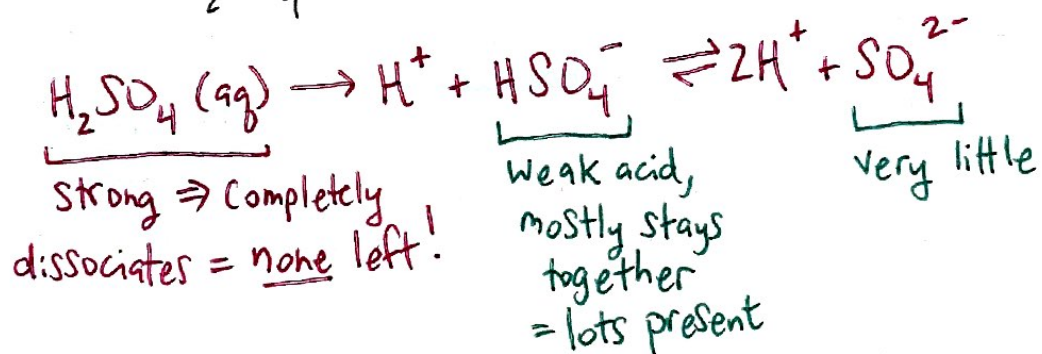 H₂SO₄ (aq) → H⁺ + HSO₄⁻ ⇌ 2H⁺ + SO₄²⁻
strong ⇒ completely
dissociates = none left!
weak acid,
mostly stays
together
= lots present
very little